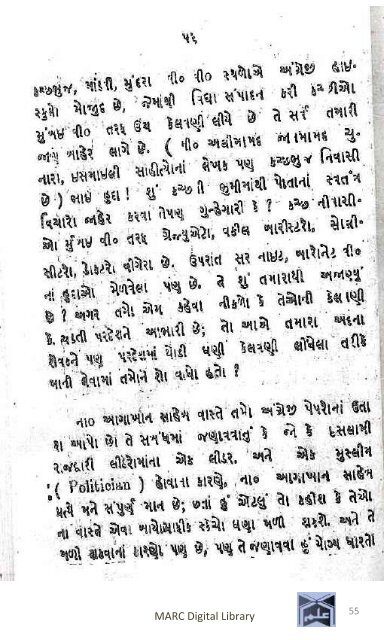 ૫૬
કચ્છભુજ, માંડવી, મુંદરા વી૦ વી૦ સ્થળોએ અંગ્રેજી હાઇ-
સ્કુલો મોજુદ છે, જેમાંથી વિદ્યા સંપાદન કરી કચ્છીઓ
મુંબઇ વી૦ તરફ ઉંચ કેલવણી લીયે છે તે સર્વ તમારી
જાણ બાહેર લાગે છે. ( વી૦ અલીમામદ જાનમામદ ચુ-
નારા, ઇસમાઇલી સાહીત્યોનાં લેખક પણ કચ્છભુજ નિવાસી
છે ) ભાઇ હુદા ! શું કચ્છની ભુમીમાંથી પોતાનાં સ્વતંત્ર
વિચારો જાહેર કરવા તેપણ ગુન્હેગારી કે ? કચ્છ નીવાસી-
ઓ મુંબઇ વી૦ તરફ ગ્રેજ્યુએટો, વકીલ બારીસ્ટરો, સોલી-
સીટરો, ડાકટરો વીગેરા છે. ઉપરાંત સર નાઇટ, બારોનેટ વી૦
નાં હુદાઓ મેળવેલા પણ છે. તે શું તમારાથી અજાણ્યું
છે ? અગર તમો એમ કહેવા નીકળો કે તેઓની કેલવણી
કે વ્યક્તી પરદેશને આભારી છે; તો આએ તમારા અદના
સેવકને પણ પરદેશમાં થોડી ઘણી કેલવણી લીધેલા તરીકે
માની લેવામાં તમોને શો વાંધો હતો ?
ના૦ આગાખાન સાહેબ વાસ્તે તમો અંગ્રેજી પેપરોનાં ઉતા
રા આપો છો તે સબંધમાં જણાવવાનું કે જો કે ઇસલામી
રાજદ્વારી લીડરોમાંના એક લીડર, અને એક મુસ્લીમ
( Politician ) હોવાના કારણે, ના૦ આગાખાન સાહેબ
પ્રત્યે મને સંપુર્ણ માન છે; છતાં હું એટલું તો કહીશ કે તેઓ
ના વાસ્તે એવા બાયોગ્રાફીક સ્કેચો ઘણા મળી શકશે. અને તે
મળી શકવાનાં કારણો પણ છે, પણ તે જણાવવા હું યોગ્ય ધારતો
MARC Digital Library
55